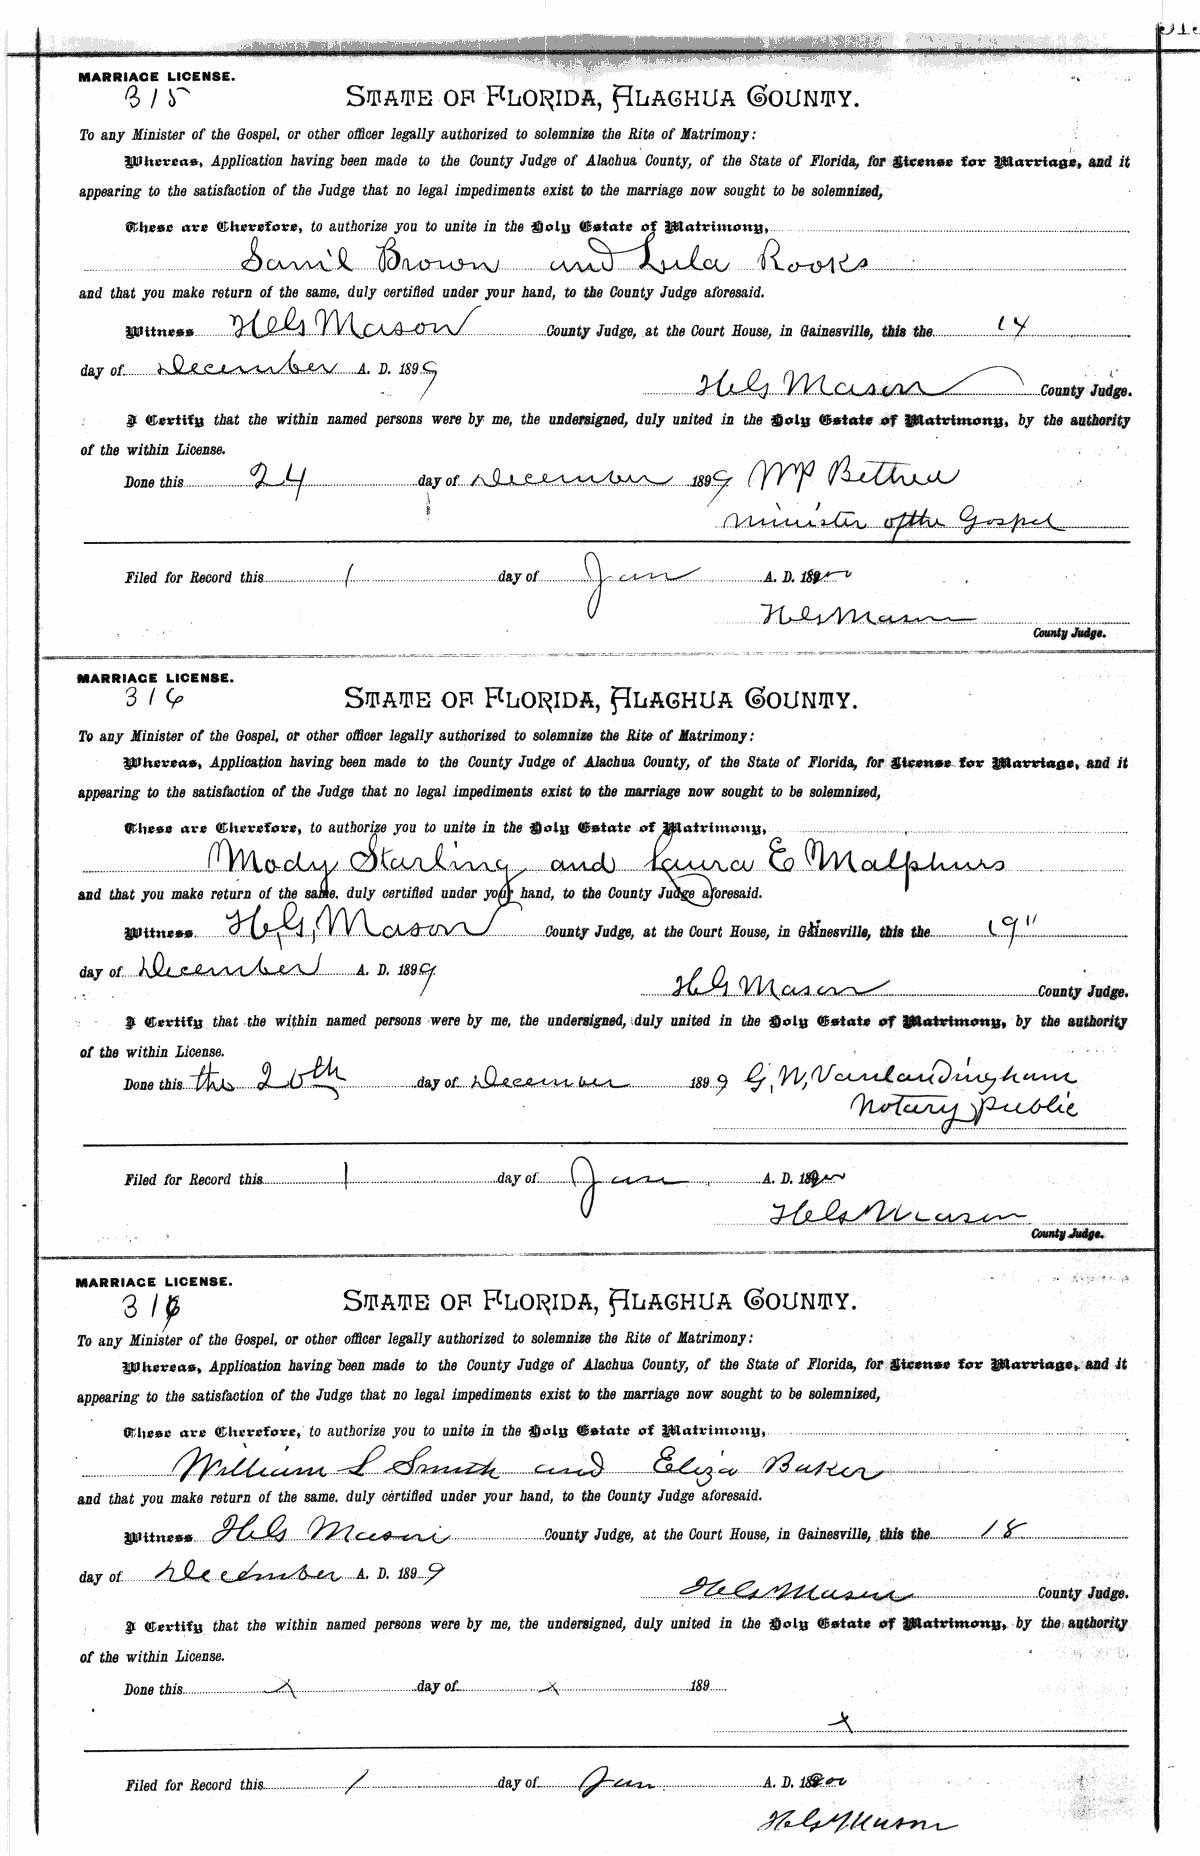 MARRIAGE LICENSE.
315
STATE OF FLORIDA, ALACHUA COUNTY.
To any Minister of the Gospel, or other officer legally authorized to solemnize the Rite of Matrimony:
Whereas, Application having been made to the County Judge of Alachua County, of the State of Florida, for License for Marriage, and it
appearing to the satisfaction of the Judge that no legal impediments exist to the marriage now sought to be solemnized,
These are Therefore, to authorize you to unite in the Holy Estate of Matrimony,
Sam'l Brown and Lula Rooks
and that you make return of the same, duly certified under your hand, to the County Judge aforesaid.
Witness H. G. Mason County Judge, at the Court House, in Gainesville, this the 14
day of December A. D. 1899
H. G. Mason County Judge.
I Certify that the within named persons were by me, the undersigned, duly united in the Holy Estate of Matrimony, by the authority
of the within License.
Done this 24 day of December 1899 WP
Minister of the Gospel
Filed for Record this 1 day of Jan A. D. 1900
H. G. Mason
County Judge.
MARRIAGE LICENSE.
316
STATE OF FLORIDA, ALACHUA COUNTY.
To any Minister of the Gospel, or other officer legally authorized to solemnize the Rite of Matrimony:
Whereas, Application having been made to the County Judge of Alachua County, of the State of Florida, for License for Marriage, and it
appearing to the satisfaction of the Judge that no legal impediments exist to the marriage now sought to be solemnized,
These are Therefore, to authorize you to unite in the Holy Estate of Matrimony,
Mody Starling and Laura E Malphurs
and that you make return of the same, duly certified under your hand, to the County Judge aforesaid.
Witness H. G. Mason County Judge, at the Court House, in Gainesville, this the 19"
day of December A. D. 1899
H G Mason County Judge.
I Certify that the within named persons were by me, the undersigned, duly united in the Holy Estate of Matrimony, by the authority
of the within License.
Done this the 20th day of December 1899 G. W. Vanlandingham
Notary Public
Filed for Record this 1 day of Jan A. D. 1900
H. G. Mason
County Judge.
MARRIAGE LICENSE.
316
STATE OF FLORIDA, ALACHUA COUNTY.
To any Minister of the Gospel, or other officer legally authorized to solemnize the Rite of Matrimony:
Whereas, Application having been made to the County Judge of Alachua County, of the State of Florida, for License for Marriage, and it
appearing to the satisfaction of the Judge that no legal impediments exist to the marriage now sought to be solemnized,
These are Therefore, to authorize you to unite in the Holy Estate of Matrimony,
William L Smith and Eliza Baker
and that you make return of the same, duly certified under your hand, to the County Judge aforesaid.
Witness H. G. Mason County Judge, at the Court House, in Gainesville, this the 18
day of December A. D. 1899
H. G. Mason County Judge.
I Certify that the within named persons were by me, the undersigned, duly united in the Holy Estate of Matrimony, by the authority
of the within License.
Done this x day of x 189
x
Filed for Record this 1 day of Jan A. D. 1900
H. G. Mason